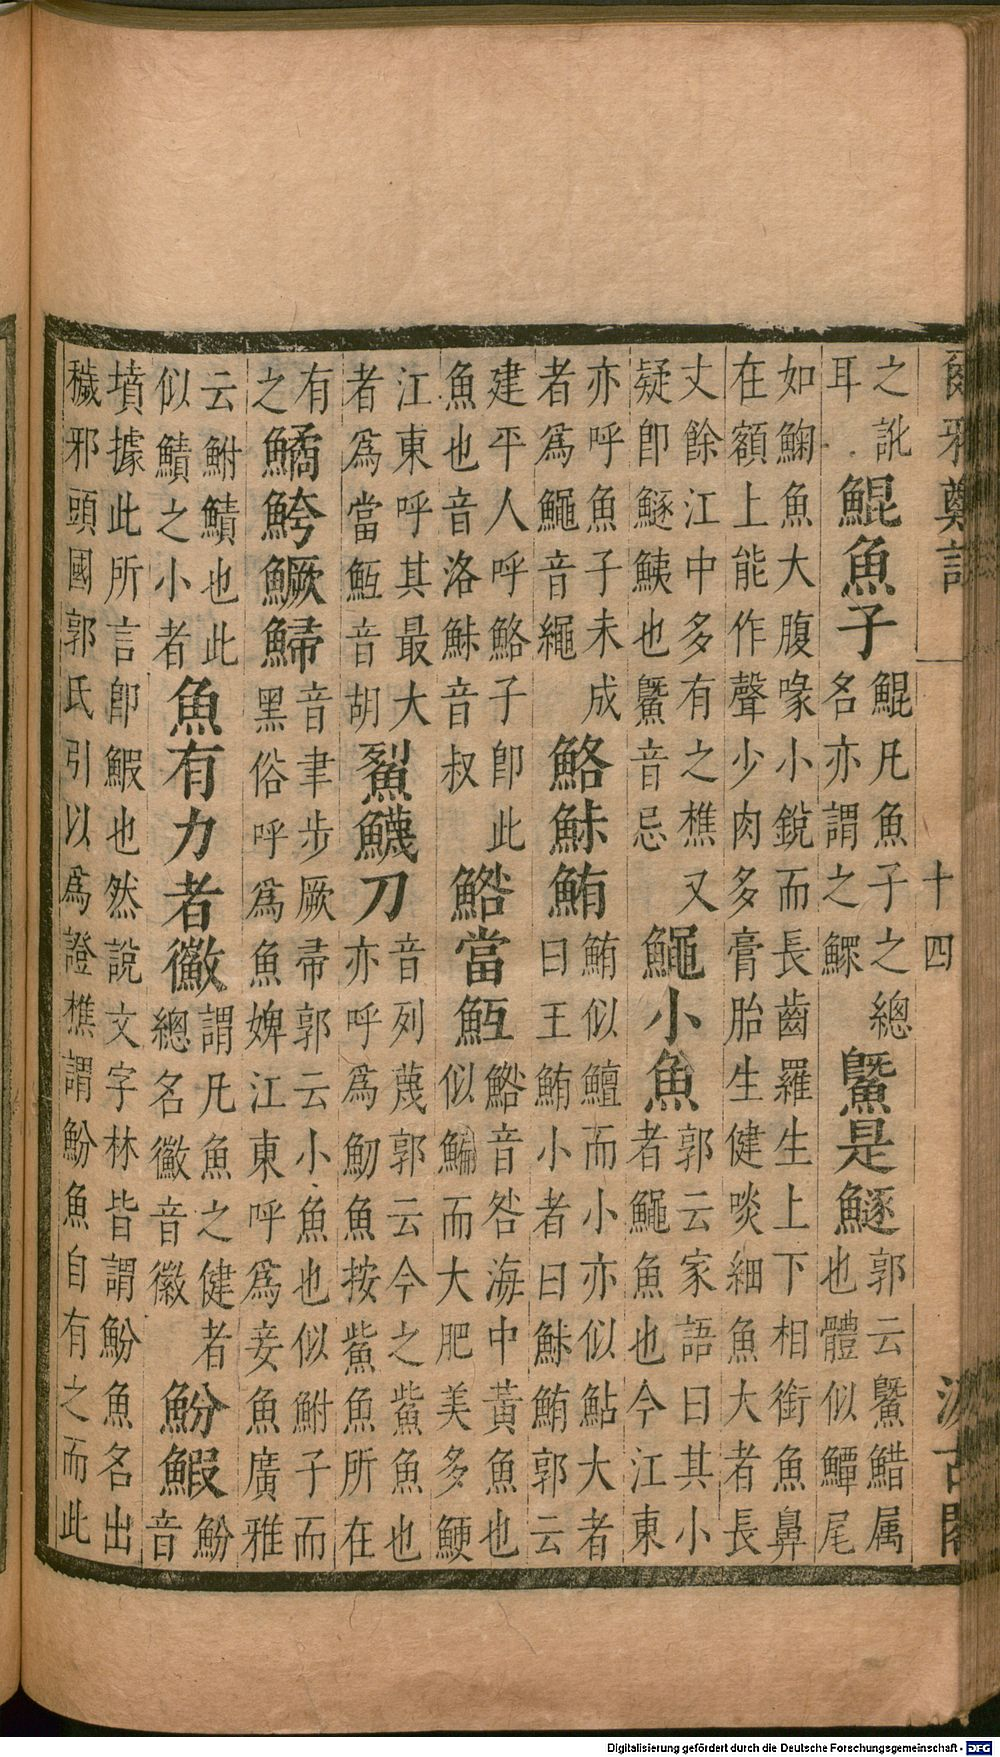 爾雅鄭註 十四 汲古閣
之訛
耳
鯤魚子
鯤凡魚子之總
名亦謂之鰥
鱀是鱁
郭云鱀䱜属
也體似鱏尾
如鮈魚大腹喙小銳而長齒羅生上下相銜魚鼻
在額上能作聲少肉多膏胎生健啖細魚大者長
丈餘江中多有之樵又
疑卽鱁鮧也鱀音忌
鱦小魚
郭云家語曰其小
者鱦魚也今江東
亦呼魚子未成
者爲鱦音繩
鮥鮛鮪
鮪似鱣而小亦似鮎大者
曰王鮪小者曰鮛鮪郭云
建平人呼鮥子卽此
魚也音洛鮛音叔
鯦當魱
鯦音咎海中黃魚也
似鯿而大肥美多鯁
江東呼其最大
者爲當魱音胡
鮤鱴刀
音列蔑郭云今之鮆魚也
亦呼爲魛魚按鮆魚所在
有
之
鱊鮬鱖鯞
音聿步厥帚郭云小魚也似鮒子而
黑俗呼爲魚婢江東呼爲妾魚廣雅
云鮒鰿也此
似鰿之小者
魚有力者黴
謂凡魚之健者
總名黴音徽
魵鰕
魵
音
墳據此所言卽鰕也然說文字林皆謂魵魚名出
穢邪頭國郭氏引以爲證樵謂魵魚自有之而此
Digitalisierung gefördert durch die Deutsche Forschungsgemeinschaft - DFG